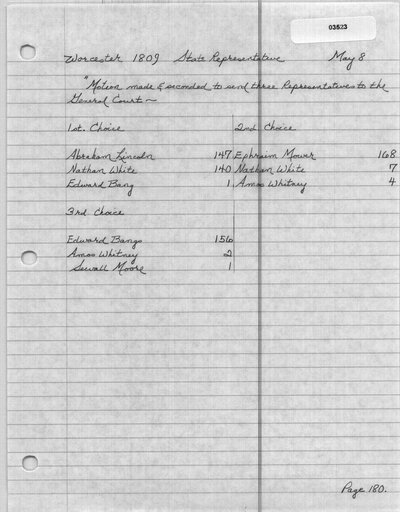 03523
Worcester 1809 State Representative May 8
"Motion made & seconded to send three Representatives to the
General Court~
1st. Choice
2nd Choice
Abraham Lincoln 147
Nathan White 140
Edward Bang 1
Ephraim Mower 168
Nathan White 7
Amos Whitney 4
3rd Choice
Edward Bangs 156
Amos Whitney 2
Sewall Moore 1
Page 180.